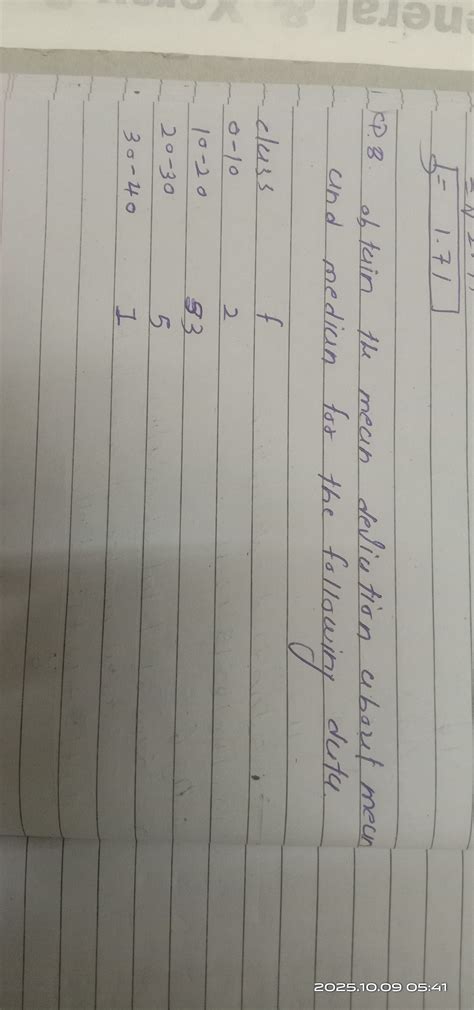 eneral &
= 1.71
Q.8. obtain the mean deviation about mean
and median for the following data.
class f
0-10 2
10-20 3
20-30 5
30-40 1
2025.10.09 05:41